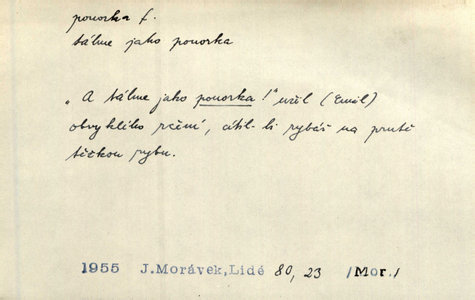 ponorka f.
táhne jako ponorka
„A táhne jako ponorka!" užil (Emil)
obvyklého rčení, cítil-li rybář na prutě
těžkou rybu.
1955 J.Morávek,Lidé 80, 23 /Mor./